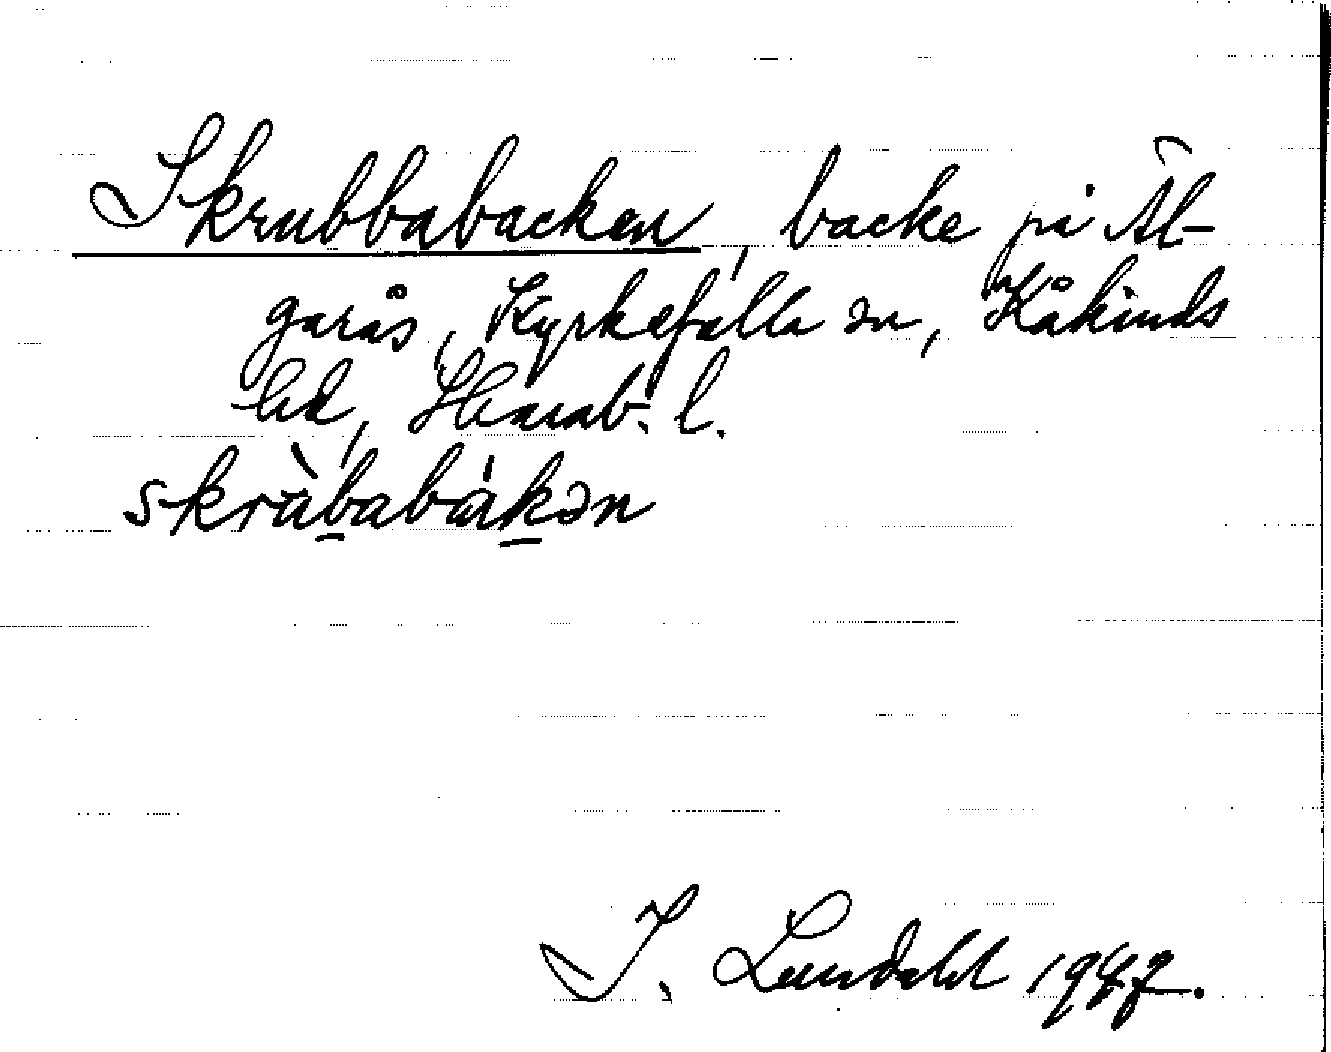 Skrubbabacken, backe på Äl-
garås, Kyrkefalla sn, Kåkinds
hd, Skarab. l.
skrùbabàkən
I. Lundahl 1947.